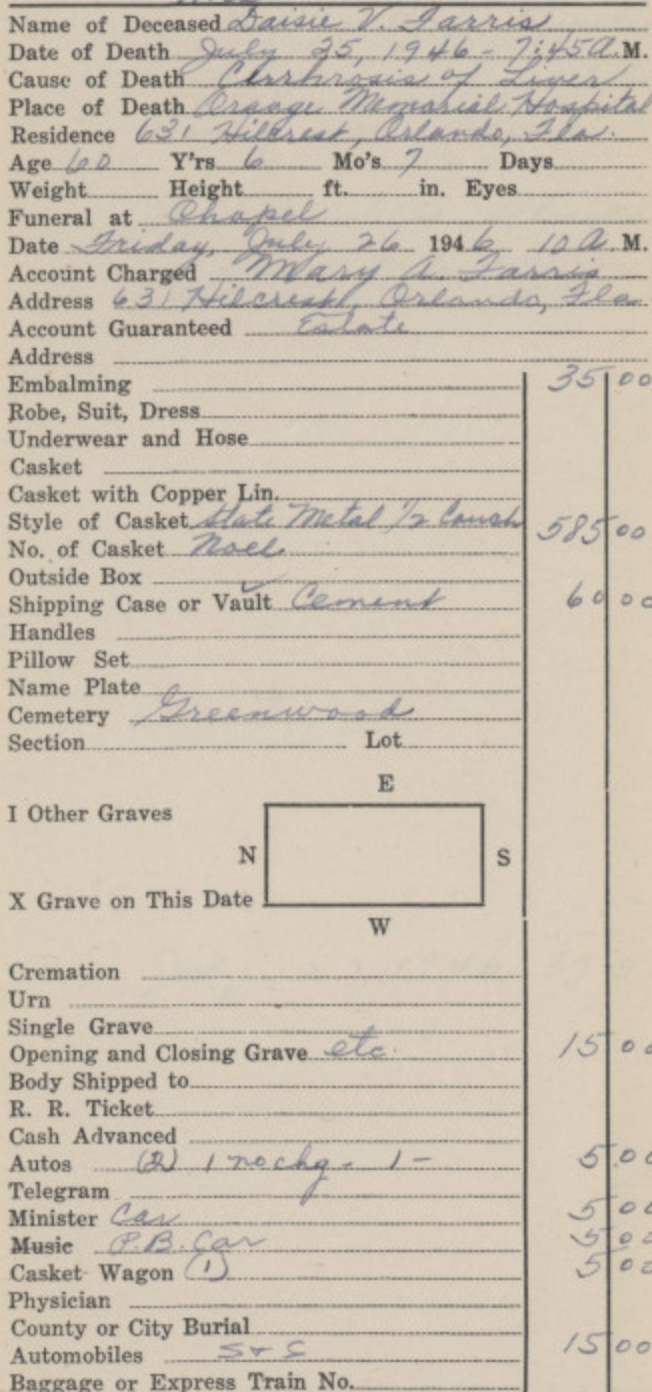 Name of Deceased Daisie V. Farris
Date of Death July 25, 1946 - 7:45 A.M.
Cause of Death Cirrhrosis of Liver
Place of Death Orange Memorial Hospital
Residence 631 Hilcrest, Orlando, Fla.
Age 60 Y'rs 6 Mo's 7 Days
Weight Height ft. in. Eyes
Funeral at Chapel
Date Friday, July 26 1946 10 A M.
Account Charged Mary A. Farris
Address 631 Hilcrest, Orlando, Fla
Account Guaranteed Estate
Address
Embalming 35 00
Robe, Suit, Dress
Underwear and Hose
Casket
Casket with Copper Lin.
Style of Casket State Metal 1/2 Couch 585 00
No. of Casket Noel
Outside Box
Shipping Case or Vault Cement 60 00
Handles
Pillow Set
Name Plate
Cemetery Greenwood
Section Lot
E
I Other Graves
N S
X Grave on This Date
W
Cremation
Urn
Single Grave
Opening and Closing Grave etc. 15 00
Body Shipped to
R. R. Ticket
Cash Advanced
Autos (2) 1 no chg - 1 - 5 00
Telegram
Minister Car 5 00
Music P.B. Car 5 00
Casket Wagon (1) 5 00
Physician
County or City Burial
Automobiles S & S 15 00
Baggage or Express Train No.